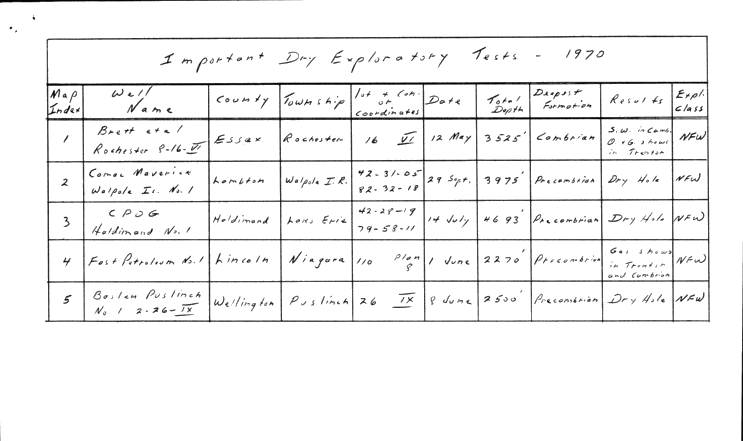 Important Dry Exploratory Tests - 1970
Map Index | Well Name | County | Township | lot & Con. or coordinates | Date | Total Depth | Deepest Formation | Results | Expl. Class
1 | Brett et al Rochester 8-16-VI | Essex | Rochester | 16 VI | 12 May | 3525' | Cambrian | S.W. in Camb. O & G shows in Trenton | NFW
2 | Comac Maverick Walpole Is. No. 1 | Lambton | Walpole I.R. | 42-31-05 82-32-18 | 29 Sept. | 3975' | Precambrian | Dry Hole | NFW
3 | CPOG Haldimand No. 1 | Haldimand | Lake Erie | 42-28-19 79-58-11 | 14 July | 4693' | Precambrian | Dry Hole | NFW
4 | Fast Petroleum No. 1 | Lincoln | Niagara | 110 Plan 8 | 1 June | 2270' | Precambrian | Gas shows in Trenton and Cambrian | NFW
5 | Puslinch No. 1 2-26-IX | Wellington | Puslinch | 26 IX | 8 June | 2500' | Precambrian | Dry Hole | NFW